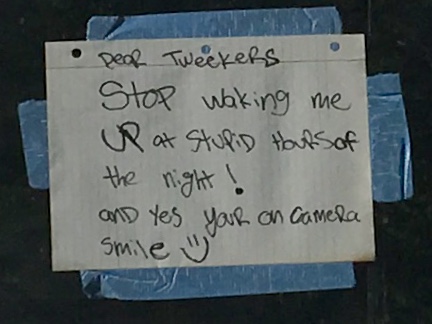 Dear Tweekers
Stop waking me
UP at Stupid Hours of
the night!
and Yes your on Camera
Smile